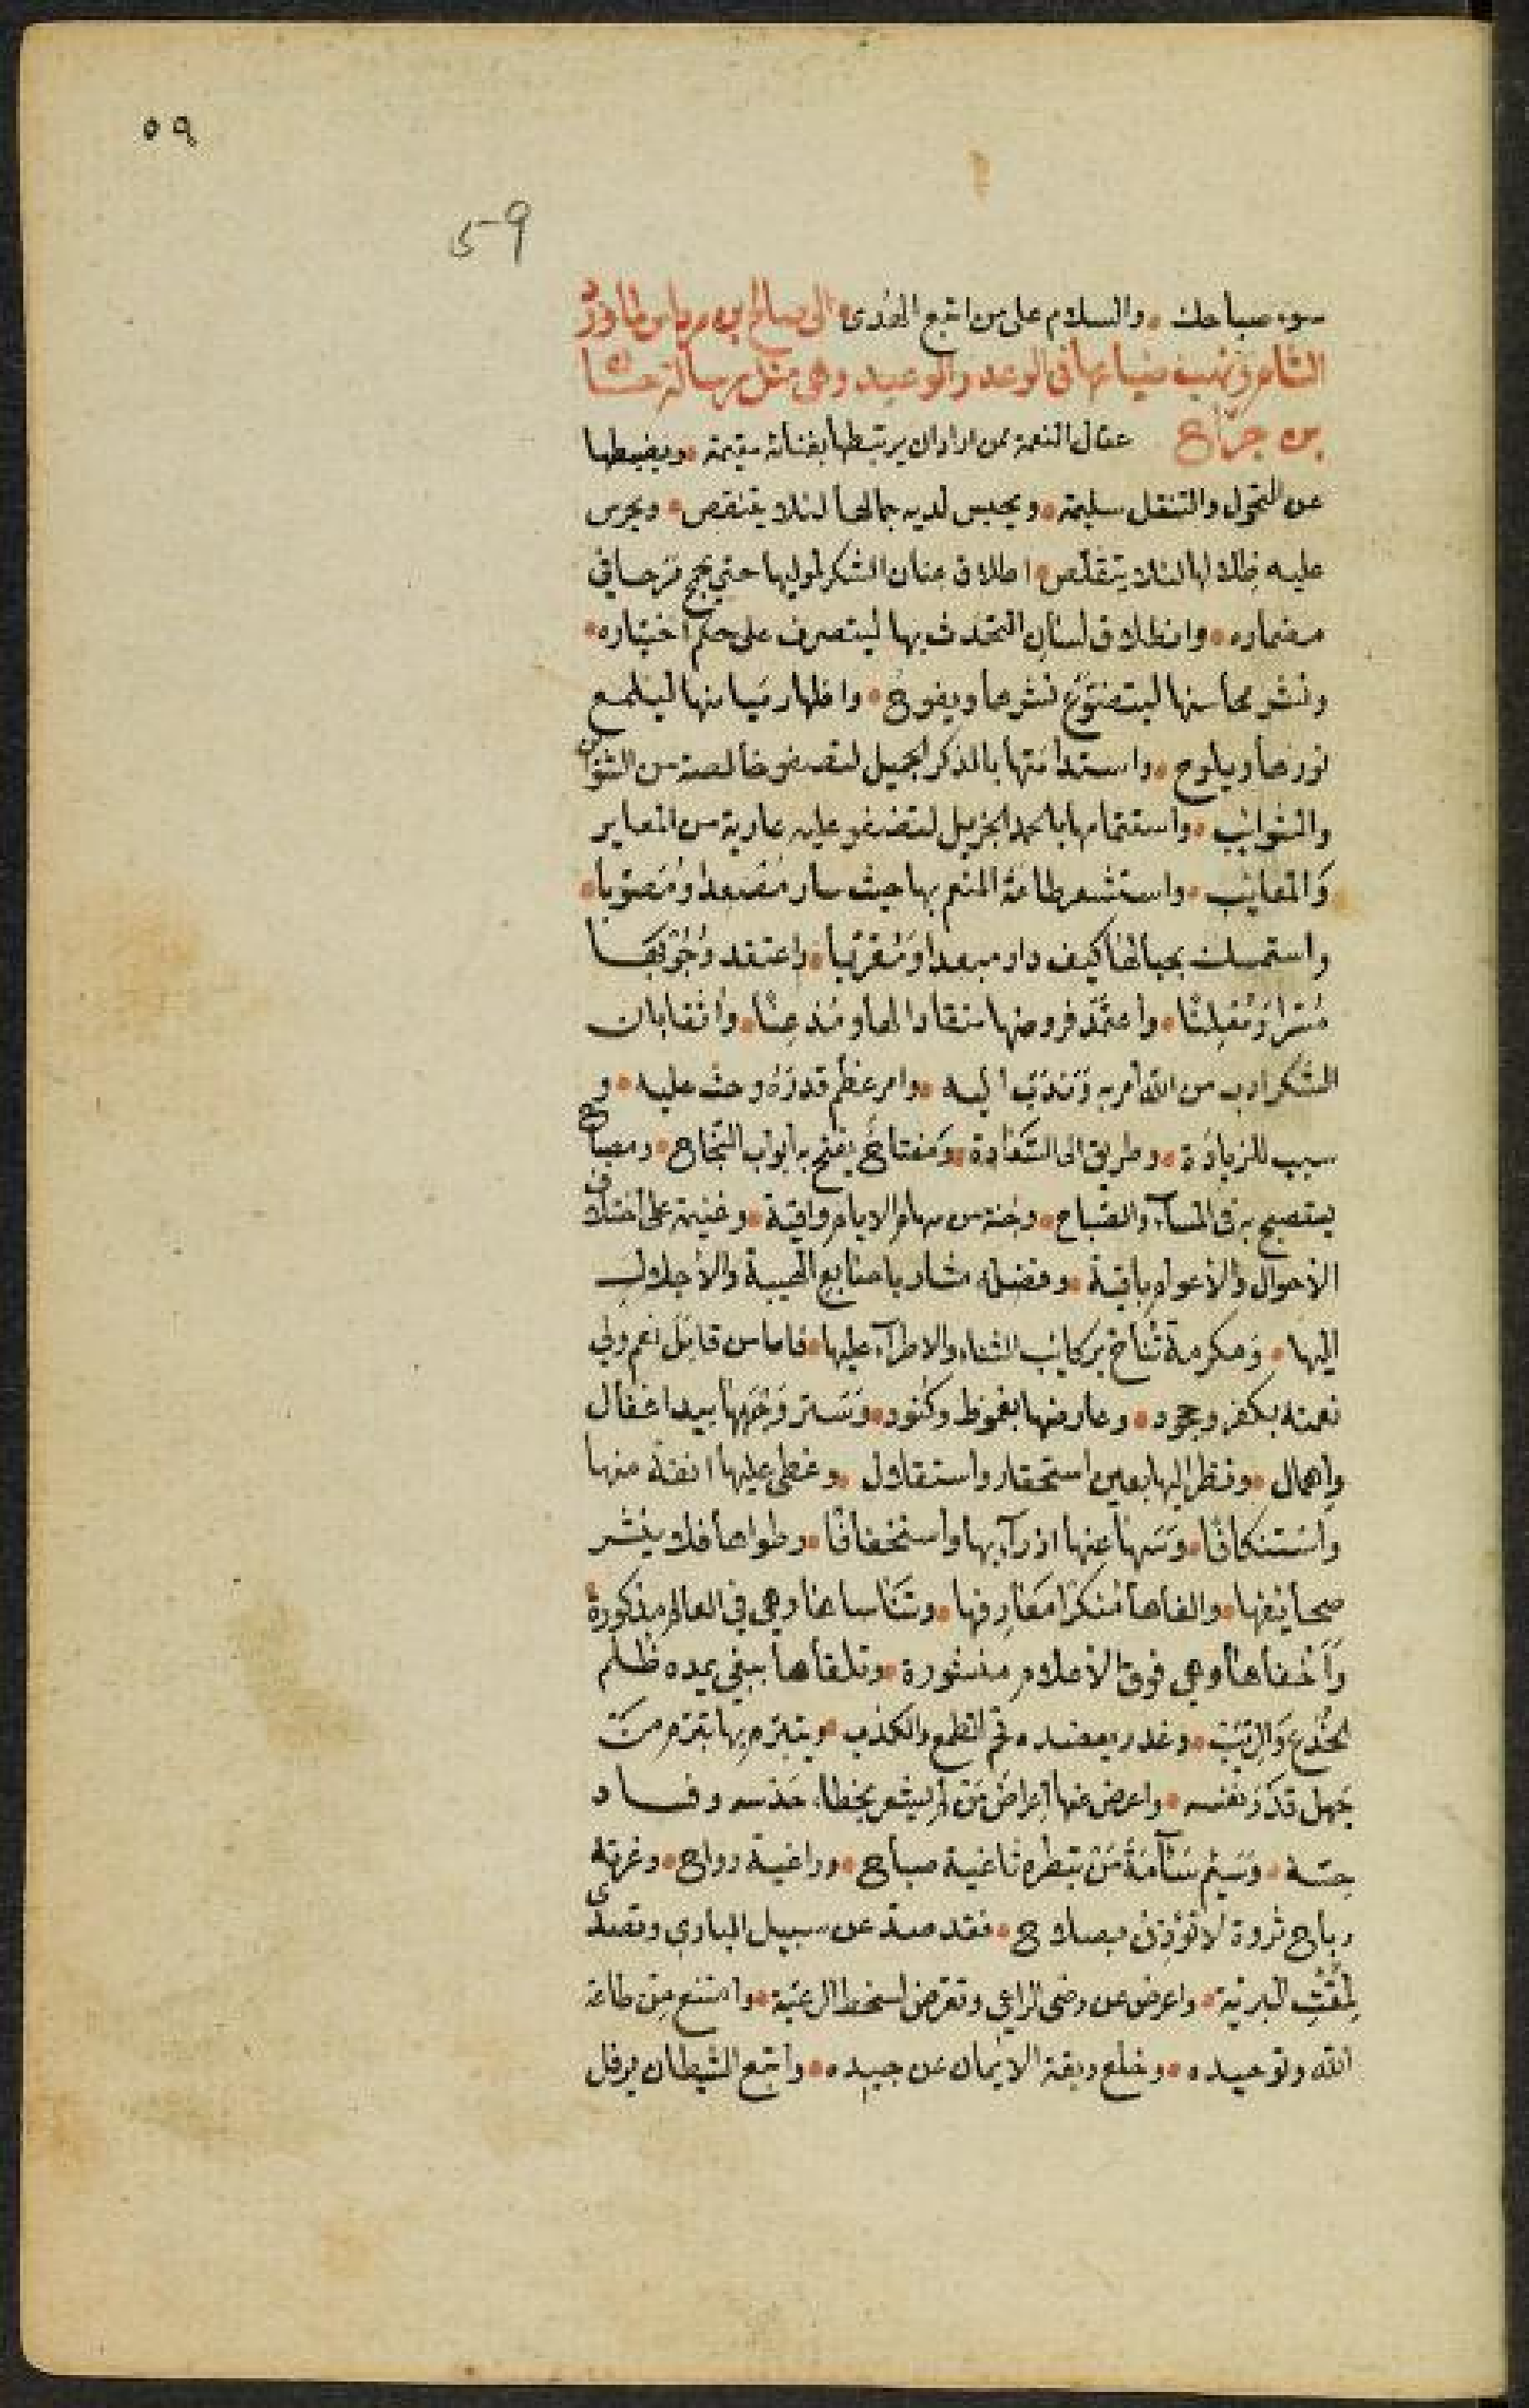 ٥٩
59
سوء صباحك • والسلام على من اتبع الهدى • الى صالح بن مرداس لما ورد
الشام ونهب ضياعها فى الوعد والوعيد وهى مثل رسالة حسان
بن جراح عقال النعمة لمن اراد ان يرتبطها بفنائه مقيمة • ويضبطها
عن التحول والتنقل سليمة • ويحبس لديه جمالها لئلا ينتقص • ويحرس
عليه ظلالها لئلا يتقلص • اطلاق عنان الشكر لموليها حتي يجمح فى
مضماره • وانطلاق لسان التحدث بها ليتصرف على حكم اختياره •
ونشر محاسنها ليتضوع نشرها ويفوح • واظهار ميامنها ليلمع
نورها ويلوح • واستدامتها بالذكر الجميل لتصفو خالصة من
والشوائب • واستتمامها بالحمد الجزيل لتضفو عليه عارية من المعاير
والمعايب • واستشعر طاعة المنعم بها حيث سار مصعدا ومصوبا •
واستمسك بحبالها كيف دار مبعدا ومقربا • واعتقد وجوبها
مسرا ومعلنا • واعتمد فروضها منقادا لها ومذعنا • واثقا بان
الشكر ادب من الله امر به وندب اليه • وامر عظم قدره وحث عليه • و
سبب للزيادة • وطريق الى السعادة • ومفتاح يفتح به ابواب النجاح • ومصباح
يستصبح به فى المساء والصباح • وجنة من سهام الايام واقية • وغنيمة على اختلاف
الاحوال والاعوام باقية • وفضيلة مشار باصابع الهيبة والاجلال
اليها • ومكرمة تناخ ركائب الثناء والاطراء عليها • فاما من قابل نعم ولي
نعمته بكفر وجحود • وعارضها بغموط وكنود • وستر وجهها بيد اغفال
واهمال • ونظر اليها بعين استحقار واستقلال • وغطى عليها انفة منها
واستنكافا • وسها عنها ازراء بها واستخفافا • وطواها فلا ينشر
صحائفها • والفاها منكرا معارفها • وتناساها وهي في العالم مذكورة
واخفاها وهي فوق الاعلام منشورة • وتلقاها ببغي يمده ظلم
الخدع والريب • وغدر يعضده قبح الطمع والكذب • وتبرم بها تبرم من
جهل قدر نفسه • واعرض عنها اعراض من لم يشعر بخطاء حدسه وفساد
حسه • وسئم سآمة من تبطره ثاغية صباح • وراغية رواح • وغرته
رياح ثروة لا تؤذن بصلاح • فقد صد عن سبيل الباري وتصدى
لمقت البرية • واعرض عن رضى الراعي وتعرض لسخط الرعية • وامتنع من طاعة
الله وتوحيده • وخلع ربقة الايمان عن جيده • واتبع الشيطان يرفل